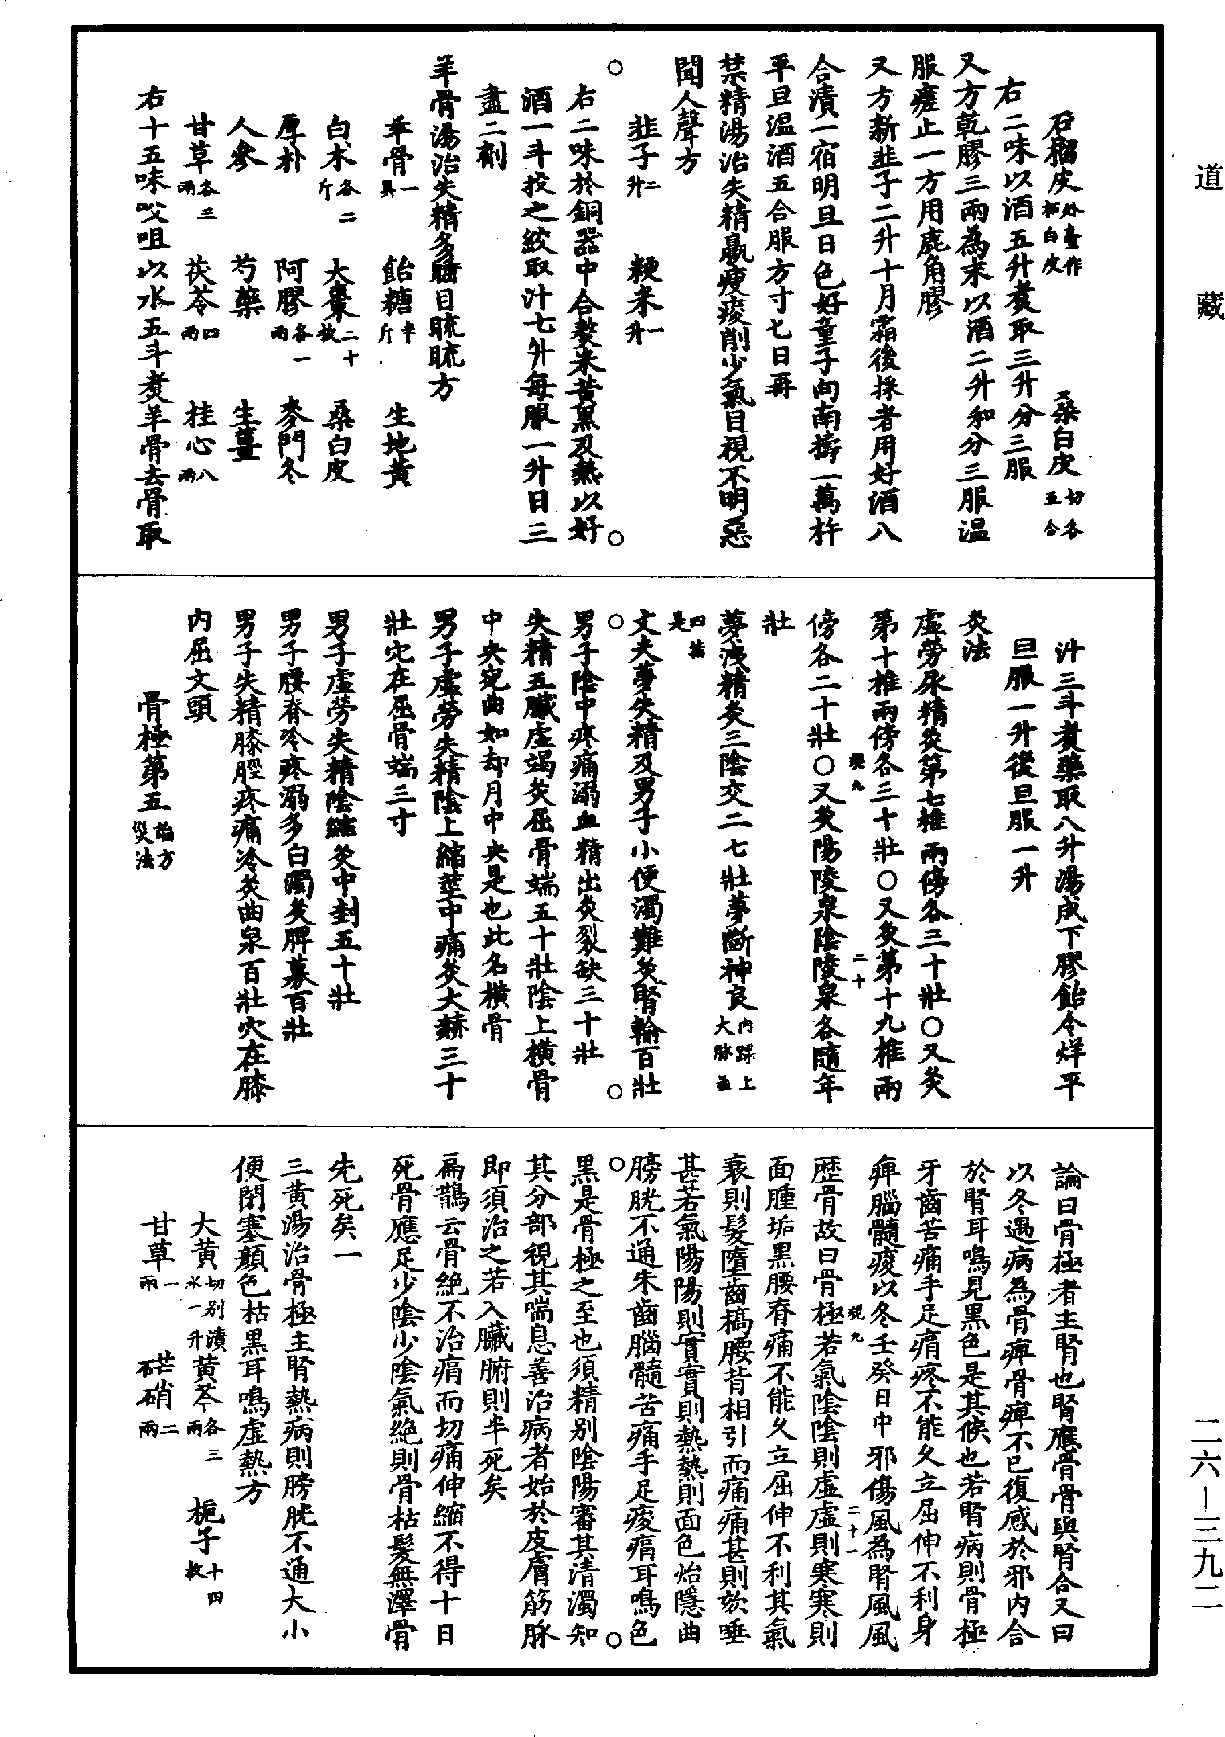 道藏
石榴皮外臺作柳白皮 桑白皮切各五合
右二味以酒五升煮取三升分三服
又方乾膠三兩為末以酒二升和分三服温
服瘥止一方用鹿角膠
又方新韭子二升十月霜後採者用好酒八
合漬一宿明旦日色好童子向南擣一萬杵
平旦温酒五合服方寸匕日再
禁精湯治失精羸瘦痠削少氣目視不明惡
聞人聲方
韭子二升 粳米一升
右二味於銅器中合熬米黃黑及熱以好
酒一斗投之絞取汁七升每服一升日三
盡二劑
羊骨湯治失精多睡目䀮䀮方
羊骨一具 飴糖半斤 生地黃
白朮各二斤 大棗二十枚 桑白皮
厚朴 阿膠各一兩 麥門冬
人參 芍藥 生薑
甘草各三兩 茯苓四兩 桂心八兩
右十五味㕮咀以水五斗煮羊骨去骨取
汁三斗煮藥取八升湯成下膠飴令烊平
旦服一升後旦服一升
灸法
虛勞尿精灸第七椎兩傍各三十壯○又灸
第十椎兩傍各三十壯○又灸第十九椎兩
傍各二十壯○又灸陽陵泉陰陵泉各隨年
壯
夢洩精灸三陰交二七壯夢斷神良內踝上大脈並四指是
丈夫夢失精及男子小便濁難灸腎輸百壯
男子陰中疼痛溺血精出灸裂缺三十壯
失精五臟虛竭灸屈骨端五十壯陰上横骨
中央宛曲如却月中央是也此名横骨
男子虛勞失精陰上縮莖中痛灸大赫三十
壯穴在屈骨端三寸
男子虛勞失精陰縮灸中封五十壯
男子腰脊冷疼溺多白濁灸脾募百壯
男子失精膝脛疼痛冷灸曲泉百壯穴在膝
內屈文頭
骨極第五論方灸法
論曰骨極者主腎也腎應骨骨與腎合又曰
以冬遇病為骨痺骨痺不已復感於邪內舍
於腎耳鳴見黑色是其候也若腎病則骨極
牙齒苦痛手足痟疼不能久立屈伸不利身
痺腦髓痠以冬壬癸日中邪傷風為腎風風
歷骨故曰骨極若氣陰陰則虛虛則寒寒則
面腫垢黑腰脊痛不能久立屈伸不利其氣
衰則髮墮齒槁腰背相引而痛痛甚則欬唾
甚若氣陽陽則實實則熱熱則面色炲隱曲
膀胱不通朱齒腦髓苦痛手足痠痟耳鳴色
黑是骨極之至也須精别陰陽審其清濁知
其分部視其喘息善治病者始於皮膚筋脉
即須治之若入臟腑則半死矣
扁鵲云骨絶不治痟而切痛伸縮不得十日
死骨應足少陰少陰氣絶則骨枯髮無澤骨
先死矣一
三黃湯治骨極主腎熱病則膀胱不通大小
便閉塞顏色枯黑耳鳴虛熱方
大黃切别漬水一升 黃芩各三兩 梔子十四枚
甘草一兩 芒硝二兩
二六—三九二